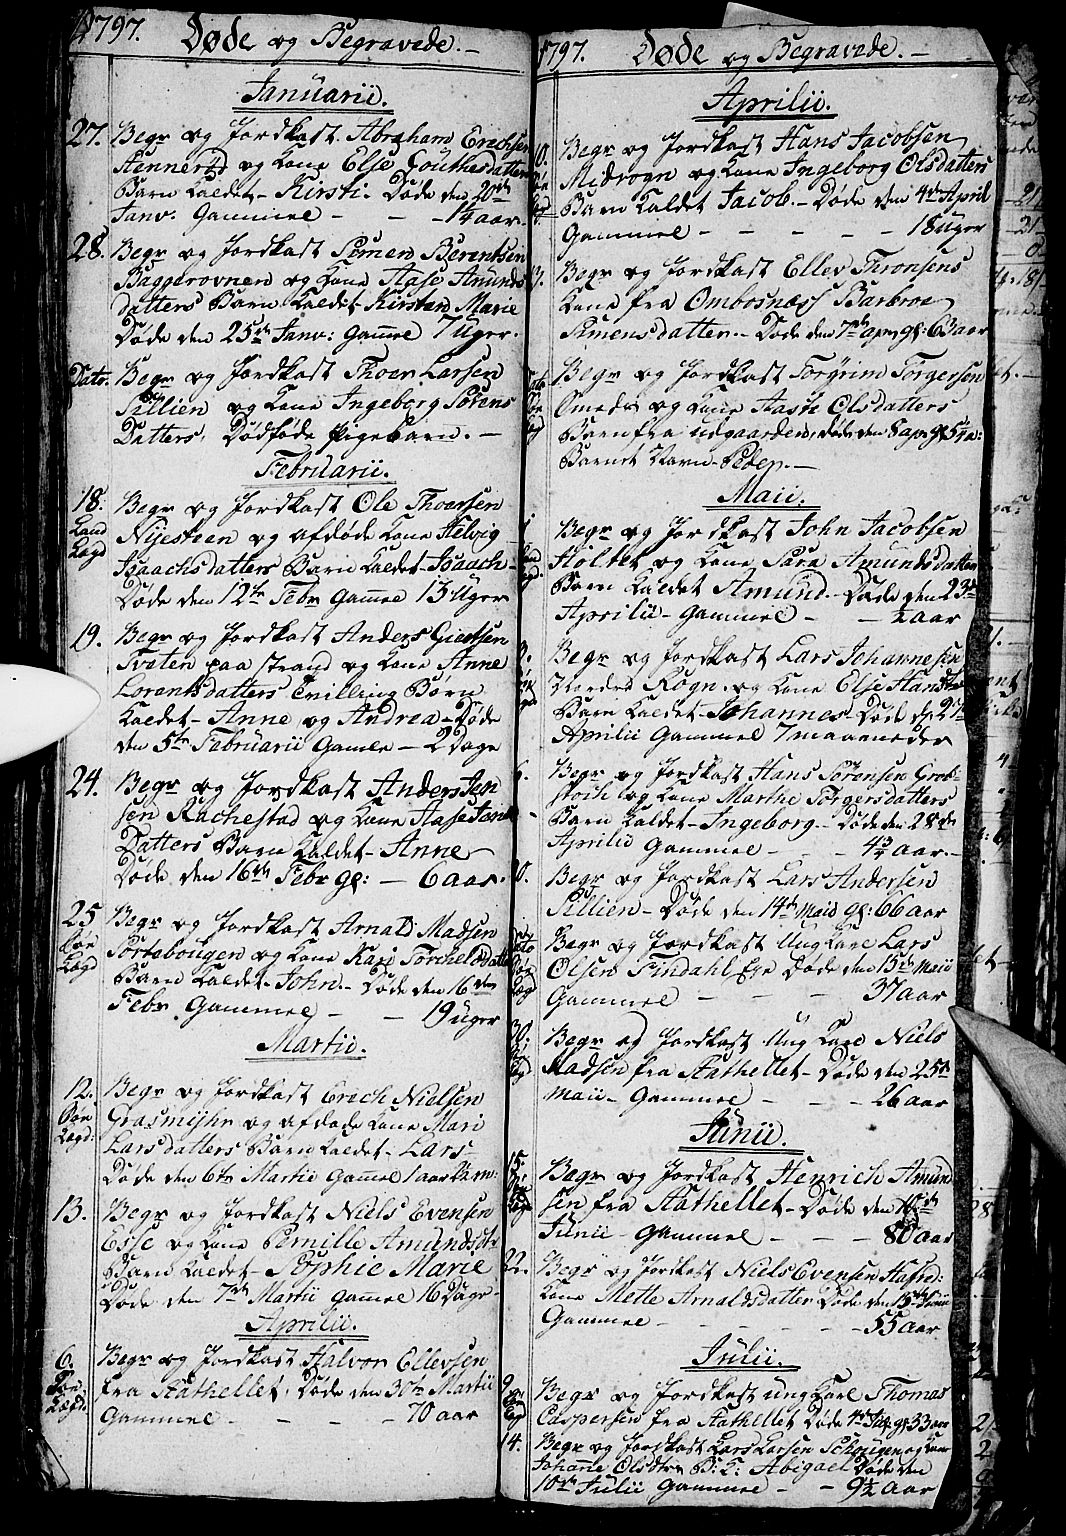 1797. Døde og Begravede.-
Januarii.
27. Begr og Jordkast. Abraham Erichsen
Hennertd og Kone Else Gouthesdatters
Barn Kaldet - Kirsti. Døde den 20de
Janv. Gammel - - - 14 aar.
28. Begr og Jordkast Simen Berentsen
Baggerovnen og Kone Aase Amunds
datters Barn Kaldet - Kirsten Marie
Døde den 25de Janv: Gamel 7 Uger.
Dato. Begr og Jordkast Thoer Larsen
Tillien og Kone Ingeborg Sørens
Datters, Dødføde Pigebarn. -
Februarii.
18. Begr og Jordkast Ole Thoersen
Land Nijesteen og afdøde Kone Helvig
Lagd Isaachsdatters Barn Kaldet - Isaach -
Døde den 12te Febr Gamel 13 Uger
19. Begr og Jordkast Anders Giertsen
Tveten paa Strand og Kone Anne
Lorentsdatters Tvilling Børn
Kaldet - Anne og Andrea - Døde
den 5te Februarii Gamle - 2 Dage
24. Begr og Jordkast Anders Jen
sen Rachestad og Kone Aase Jens
Datters Barn Kaldet - Anne
Døde den 16de Febr gl: - 6 aar.
25 Begr og Jordkast Arnold Madsen
Søe Portebougen og Kone Kari Torchelsdatter
Lagd Barn Kaldet - John. - Døde den 16 den
Febr. Gammel - - 19 uger
Martii.
12. Begr og Jordkast Erich Nielsen
Søe Grasmijhr og afdøde Kone Mari
Lagd: Larsdatters Barn Kaldet - Lars -
Døde den 6te Martii Gamel 1 aar
13. Begr og Jordkast Niels Evensen
Esse og Kone Pernille Amundsdtr
Barn Kaldet - Sophie Marie
Døde den 7de Martii Gamel 16 Dage -
Aprilii.
6. Begr og Jordkast Halvor Ellevsen
Søe fra Stathellet, Døde den 30te Martii
Lægd Gammel - - - - 70 aar
1797. Døde og Begravede. -
Aprilii.
Begr og Jordkast Hans Jacobsen
Midsogn og Kone Ingeborg Olsdatters
Barn Kaldet Jacob. - Døde den 4de April
Gammel - - - - - 18 uger
Begr og Jordkast Ellev Tronsens
Kone fra Ombosnæss Barbroe
Simensdatter. - Døde den 7de apr gl: 63 aar
Begr og Jordkast Torgrim Torgersen
Omeda og Kone Aaste Olsdatters
Barn fra udgaarden, døde den 8 apr gl 5 1/4 a:
Barnet Navn - Peder. -
Maii.
Begr og Jordkast John Jacobsen
Holtet og Kone Sara Amundsdatters
Barn Kaldet Amund. Døde den 23de
Aprilii - Gammel - - 1/2 aar
Begr og Jordkast Lars Johannesen
Nordre Rogn. og Kone Else Hansdtr
Barn Kaldet - Johannes - Døde d. 27de
Aprilii Gammel 7 maaneder
Begr og Jordkast Hans Sørensen Grob-
stoch og Kone Marthe Torgersdatters
Barn Kaldet - Ingeborg - Døde den 28de
Aprilii Gammel - - 4 3/4 aar. -
Begr og Jordkast Lars Andersen
Tillien - Døde den 14de Maii gl: 66 aar
Begr og Jordkast Ung Karl Lars
Olsen Findahl Eje Døde den 15de Maii
Gammel - - - - 37 aar
30. Begr og Jordkast Ung Karl Niels
Madsen fra Stathellet - Døde den 25de
Maii - Gammel - - 26 aar
Junii.
15. Begr og Jordkast Henrich Amund
sen fra Stathellet - Døde den 10de
Junii - Gammel - - - 80 aar
22. Begr og Jordkast Niels Evensen Hafred:
Kone Mette Arnoldsdatter Døde den 15de Junii
Gammel - - - - - 55 aar
Julii.
9 Begr og Jordkast ung Karl Thomas
Caspersen fra Stathellet Døde 4de Julii gl 33 aar
14. Begr og Jordkast Lars Larsen Schougen og Kone
Johanne Olsdtr B: K: Abigael Døde den
10de Julii Gammel - - 9 1/2 aar